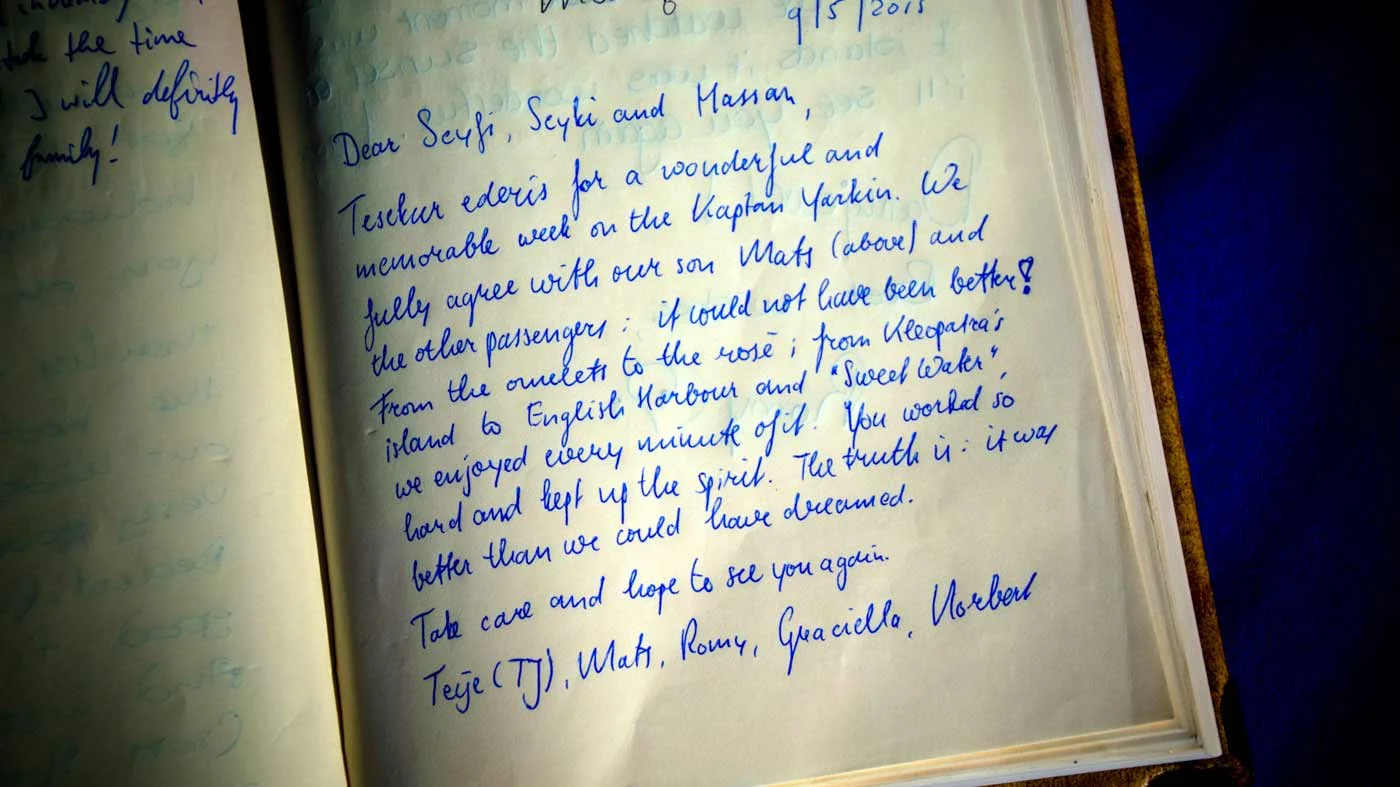 took the time
I will definitly
family!
9/5/2015
Dear Seyfi, Seyki and Hassan,
Tesekur ederis for a wonderful and
memorable week on the Kaptan Yarkin. We
fully agree with our son Mats (above) and
the other passengers: it could not have been better!
From the omelets to the rosé; from Kleopatra's
island to English Harbour and "Sweet Water",
we enjoyed every minute of it. You worked so
hard and kept up the spirit. The truth is: it was
better than we could have dreamed.
Take care and hope to see you again.
Teije (TJ), Mats, Romy, Graciella, Norbert